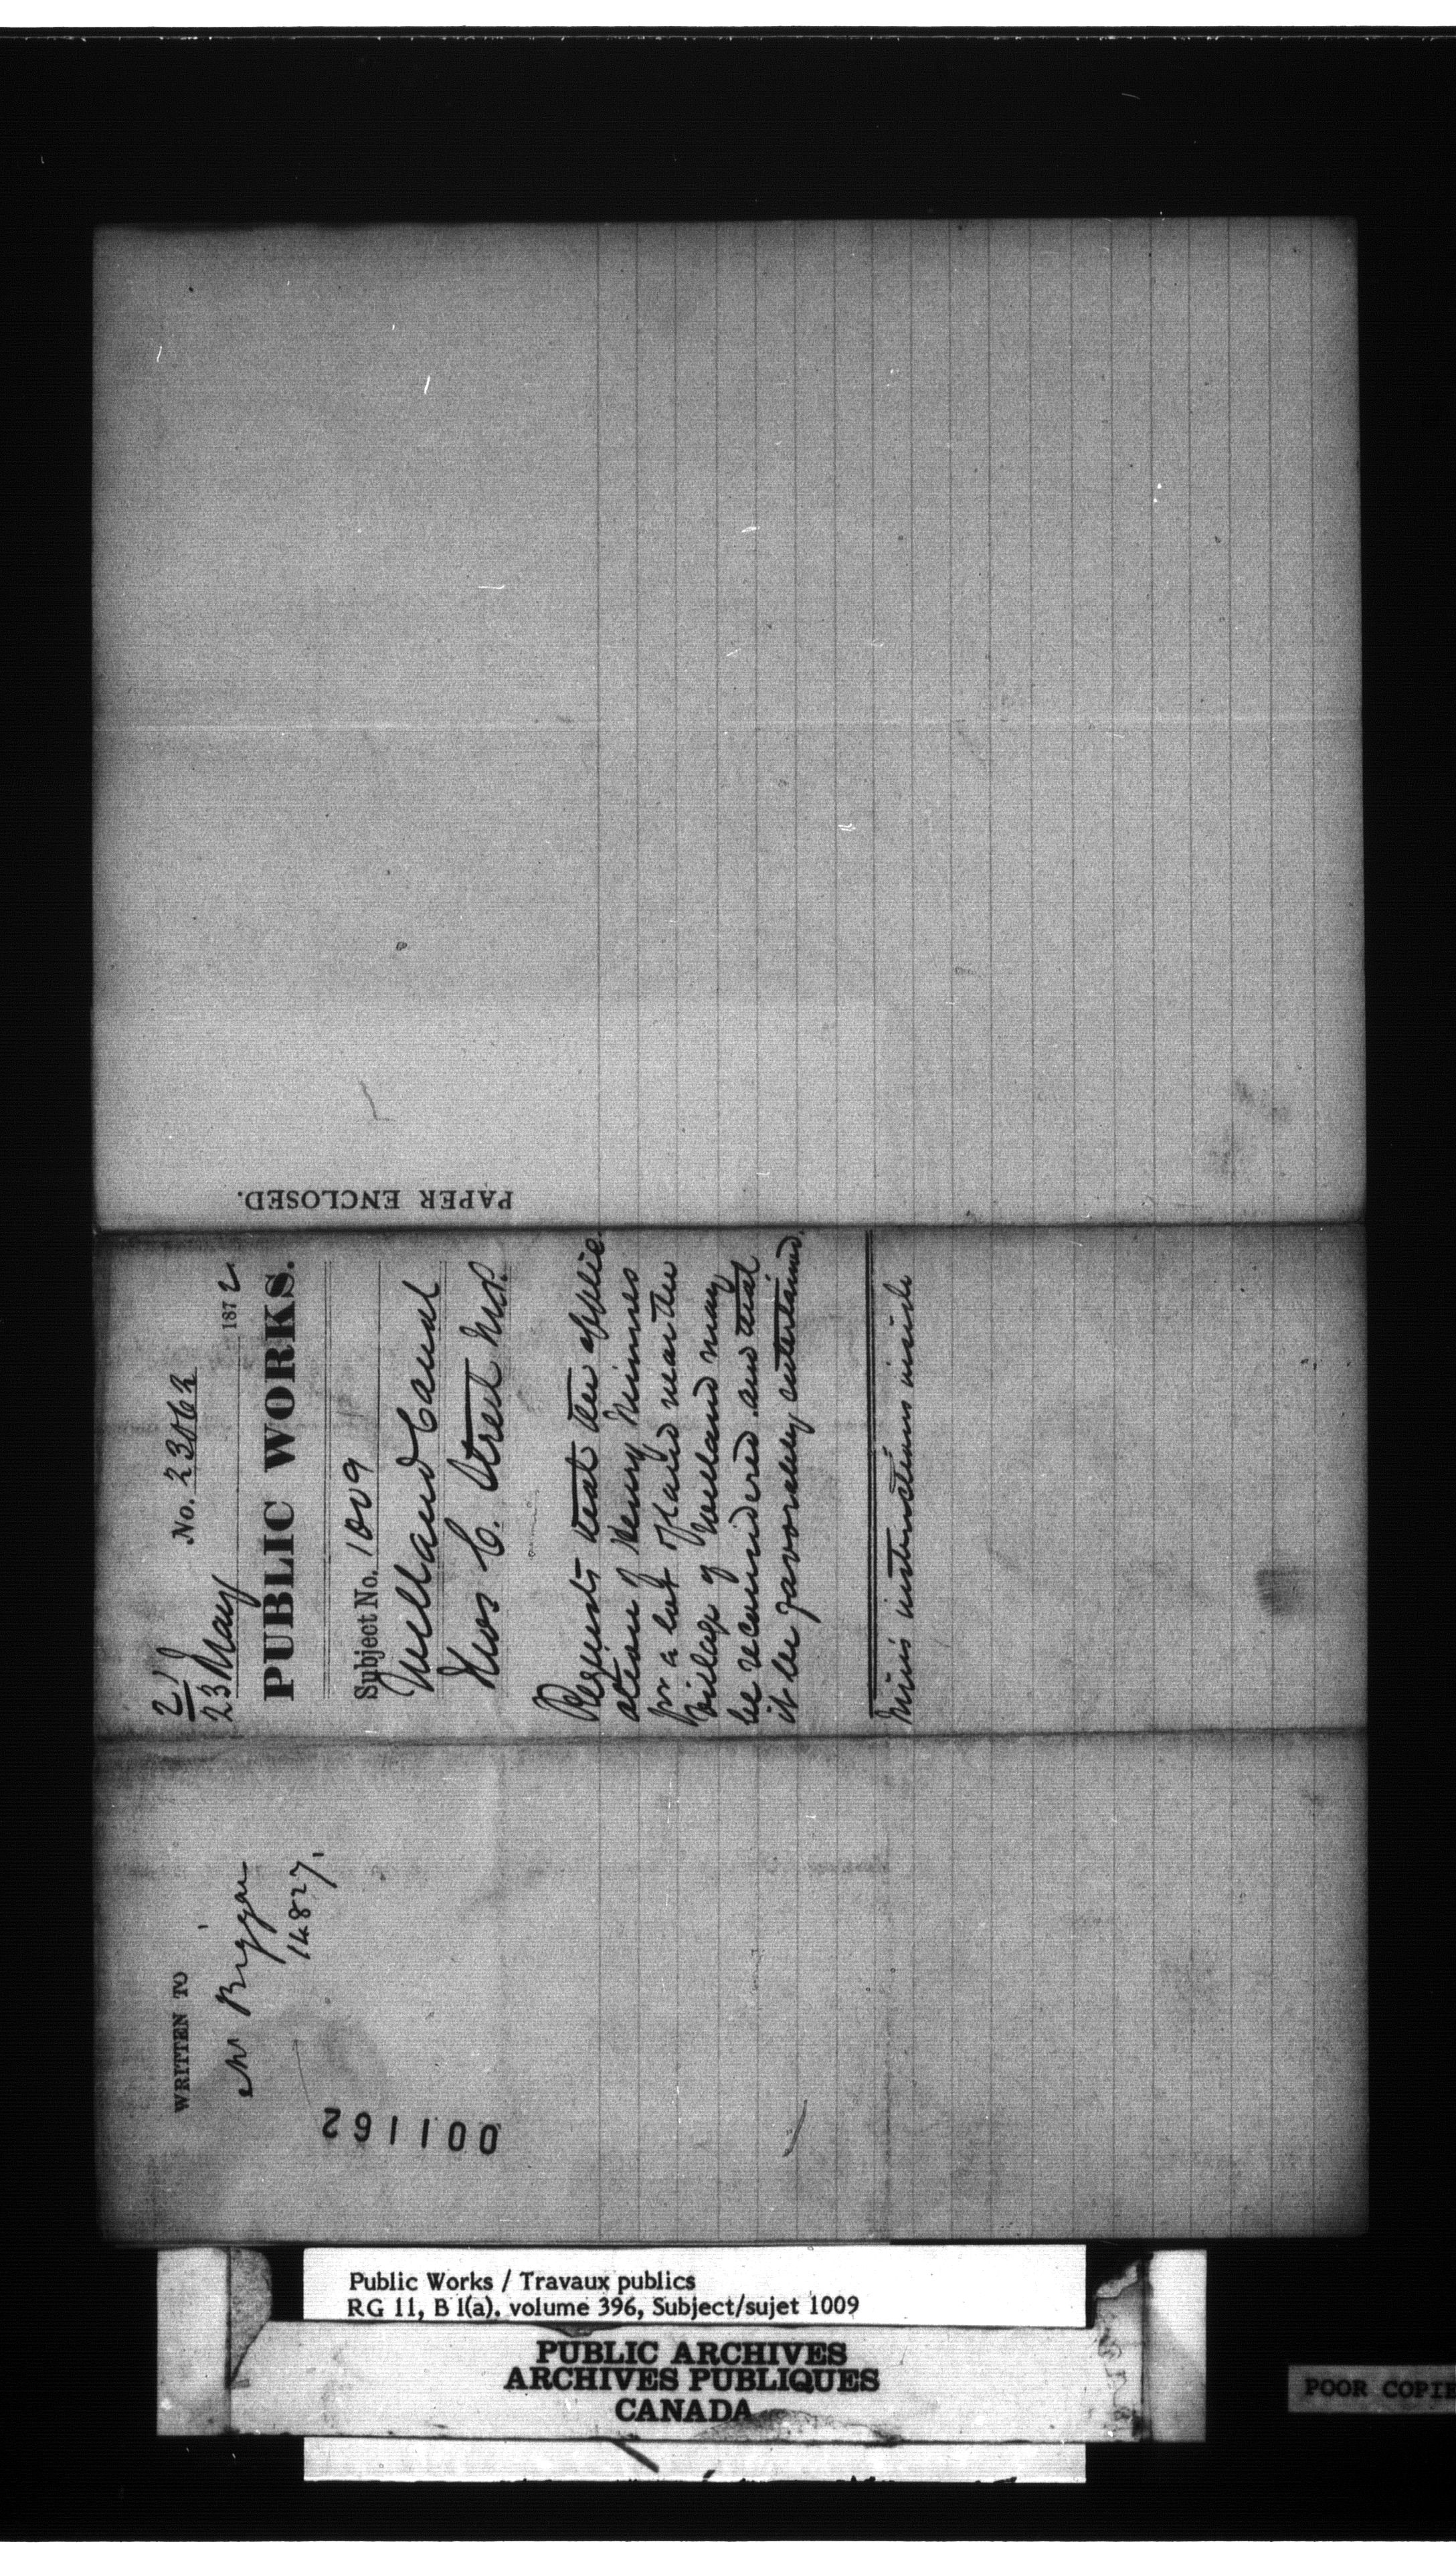 PAPER ENCLOSED.
21
23 May
No. 23063
1872
PUBLIC WORKS.
Subject No. 1009
Welland Canal
Thos C. Street M.P.
Requests that the applic
ation of Henry
for a lot of land near the
village of Welland may
be reconsidered and that
it be favorably entertained.
Min's instructions inside
WRITTEN TO
Mr Biggar
14827.
001162
Public Works / Travaux publics
RG 11, B 1(a), volume 396, Subject/sujet 1009
PUBLIC ARCHIVES
ARCHIVES PUBLIQUES
CANADA
POOR COPIE